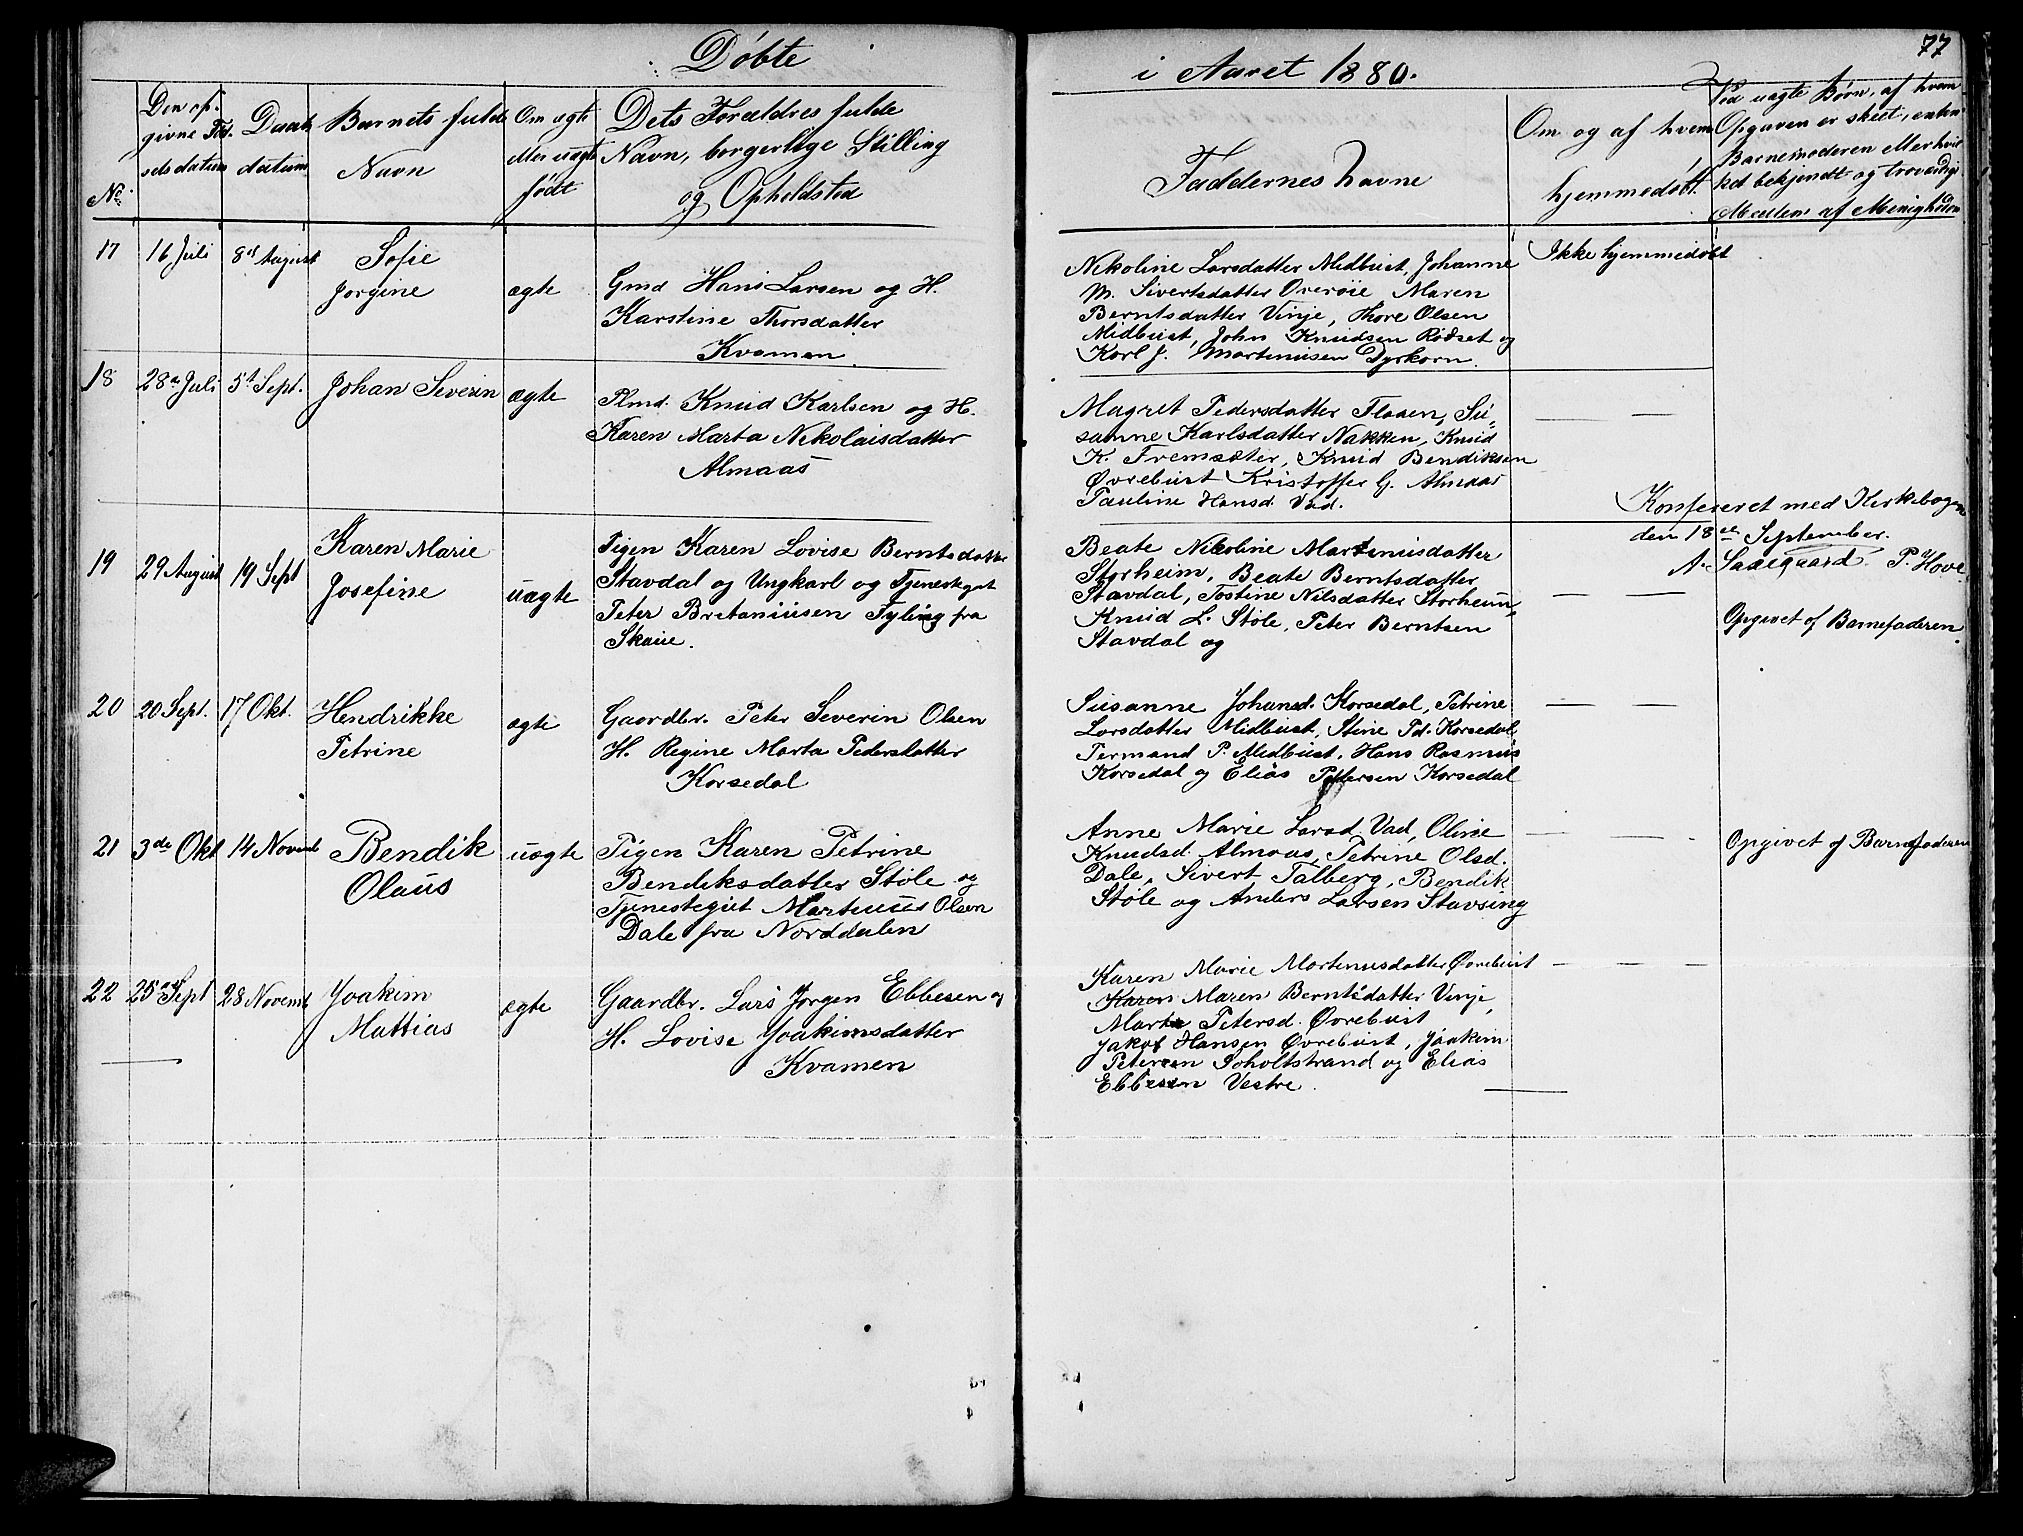 77
Døbte
i Aaret 1880.
No.
Den op-
givne Fød-
selsdatum
Daabs
datum
Barnets fulde
Navn
Om ægte
eller uægte
født
Dets Forældres fulde
Navn, borgerlige Stilling
og Opholdsted
Faddernes Navne
Om og af hvem
hjemmedøbt.
Ved uægte Børn, af hvem
Opgaven er skeet, enten
Barnemoderen eller hvil
ket bekjendt og troværdigt
Medlem af Menigheden
17
16 Juli
8de August
Sofie
Jorgine
ægte
Gmd Hans Larsen og H.
Karstine Thorsdatter
Kvamen
Nikoline Larsdatter Midbust, Johanne
M. Sivertsdatter Overøie Maren
Berntsdatter Vinje, Thore Olsen
Midbust, John Knudsen Rødset og
Karl J. Martinusen Dyrkorn.
Ikke hjemmedøbt
18
28de Juli
5t Sept.
Johan Severin
ægte
Plmd. Knud Karlsen og H.
Karen Marta Nikolaisdatter
Almaas
Magret Pedersdatter Flaaen, Su-
sanne Karlsdatter Nakken, Knud
K. Fremsæter, Knud Bendiksen
Øvrebust Kristoffer G. Almaas
Pauline Hansd. Vad.
— —
Konfereret med Kirkebogen
den 18de September.
A. Saaegaard P. Hove
19
29 August
19 Sept
Karen Marie
Josefine
uægte
Pigen Karen Lovise Berntsdatter
Stavdal og Ungkarl og Tjenestegut
Peter Bretaniusen Fyling fra
Skaue.
Beate Nikoline Martinusdatter
Storheim, Beate Berntsdatter
Stavdal, Tostine Nilsdatter Storheim,
Knud L. Støle, Peter Berntsen
Stavdal og
— —
Opgivet af Barnefaderen.
20
20 Sept.
17 Okt.
Hendrikke
Petrine
ægte
Gaardbr. Peter Severin Olsen
H. Regine Marta Pedersdatter
Korsedal
Susanne Johansd. Korsedal, Petrine
Larsdatter Midbust, Stine Pd. Korsedal
Permand P. Midbust, Hans Rasmus
Korsedal og Elias Pedersen Korsedal
— —
21
3de Okt
14 Novemb
Bendik
Olaus
uægte
Pigen Karen Petrine
Bendiksdatter Støle og
Tjenestegut Martinus Olsen
Dale fra Norddalen
Anne Marie Larsd. Vad, Oline
Knudsd. Almaas, Petrine Olsd.
Dale, Sivert Talberg, Bendik
Støle og Anders Larsen Stavsing
— —
Opgivet af Barnefaderen
22
25de Sept
28 Novemb
Joakim
Mattias
ægte
Gaardbr. Lars Jørgen Ebbesen og
H. Lovise Joakimsdatter
Kvamen
Karen Marie Martinusdatter Øvrebust
Karen Maren Berntsdatter Vinje,
Marta Petersd. Øvrebust
Jakob Hansen Øvrebust, Joakim
Petersen Soholtstrand og Elias
Ebbesen Vestre.
— — —